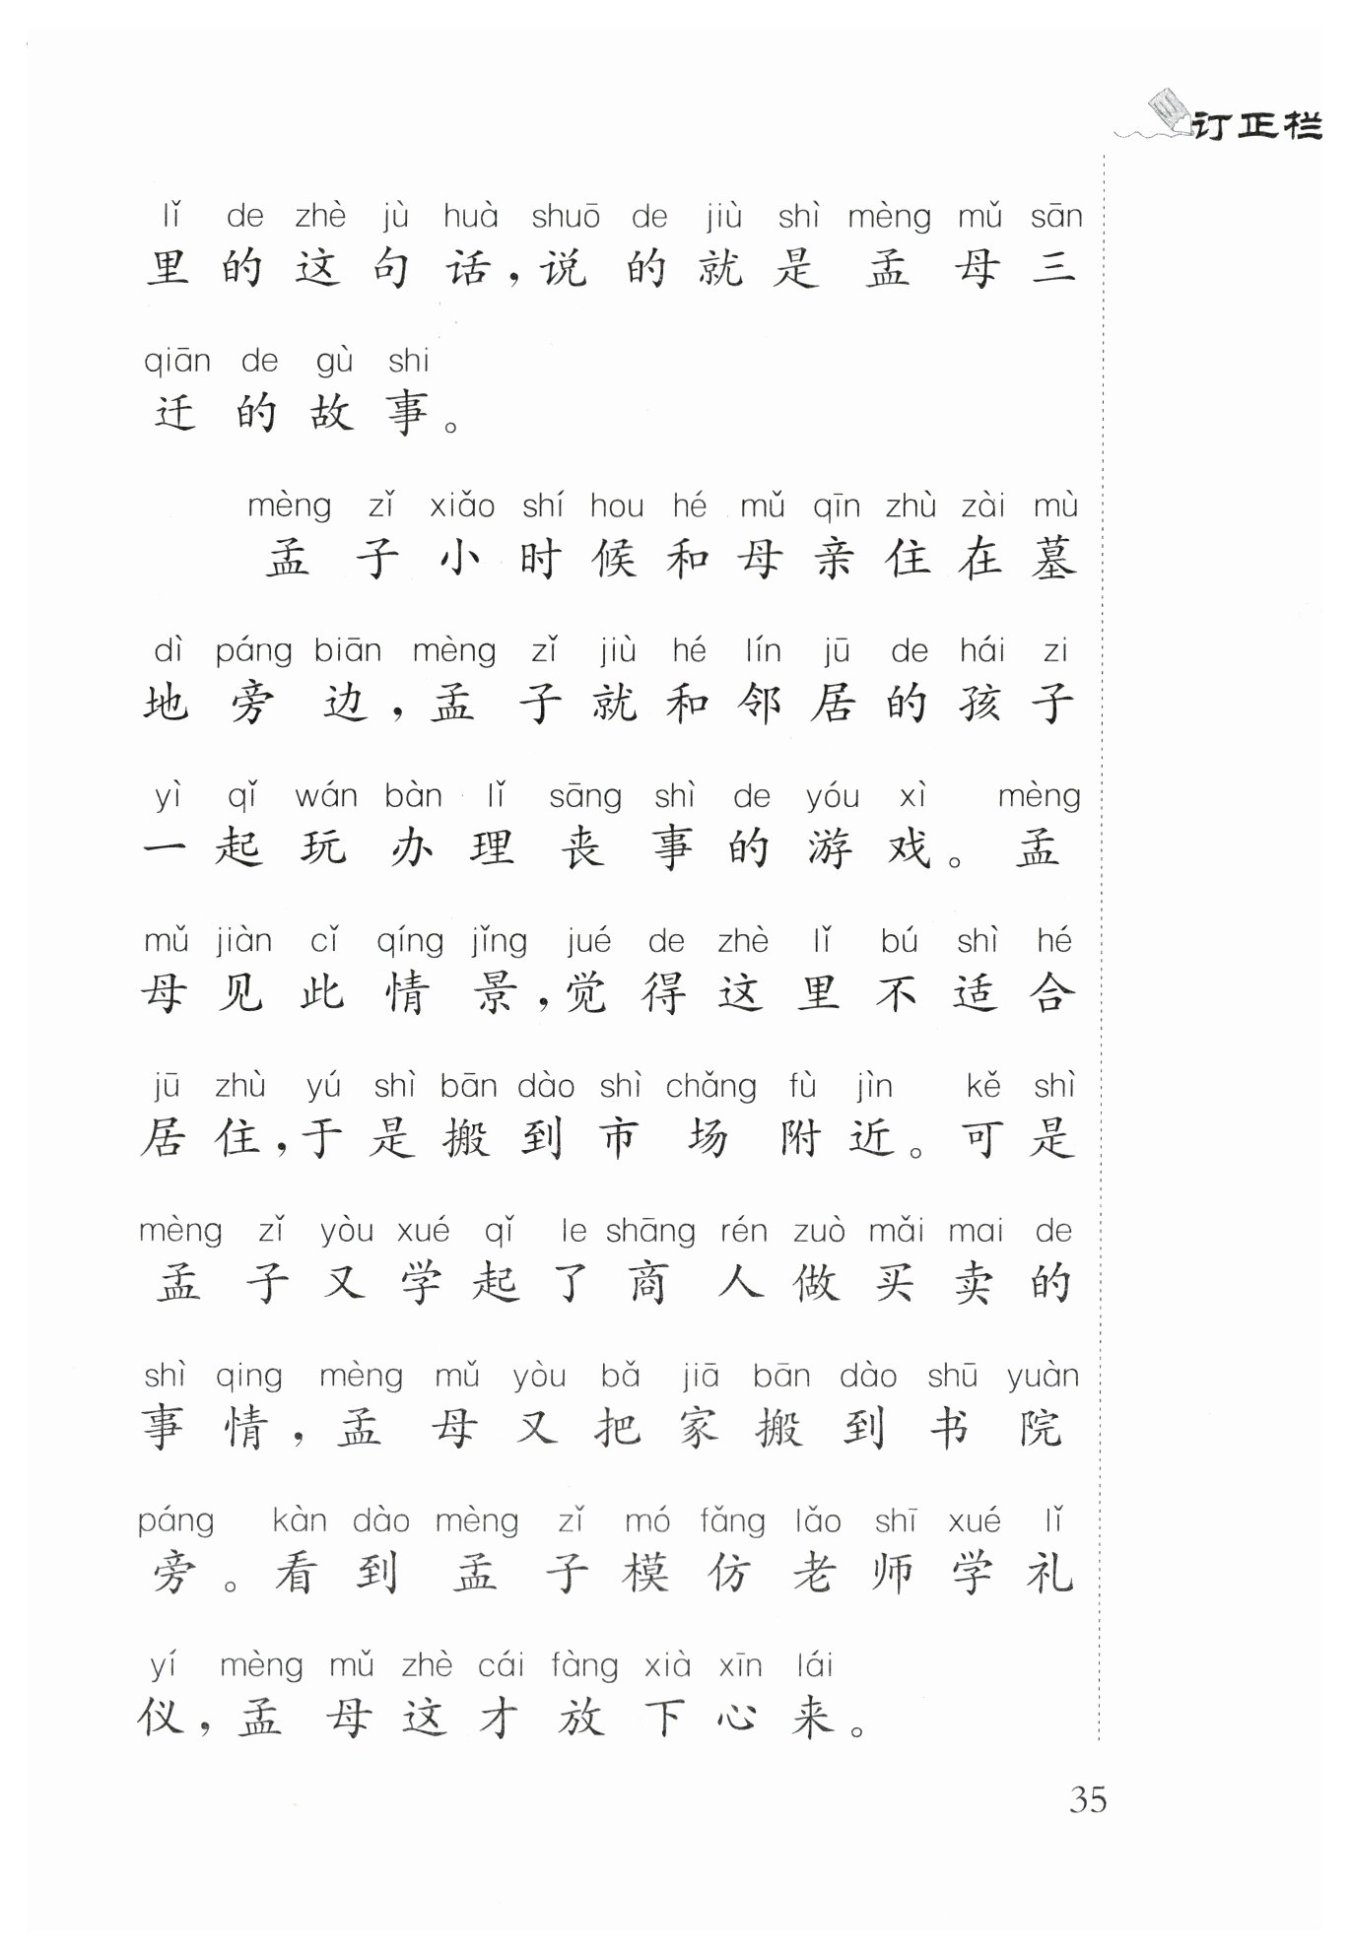 订正栏
lǐ de zhè jù huà shuō de jiù shì mèng mǔ sān
里的这句话，说的就是孟母三
qiān de gù shi
迁的故事。
mèng zǐ xiǎo shí hou hé mǔ qīn zhù zài mù
孟子小时候和母亲住在墓
dì páng biān mèng zǐ jiù hé lín jū de hái zi
地旁边，孟子就和邻居的孩子
yì qǐ wán bàn lǐ sāng shì de yóu xì mèng
一起玩办理丧事的游戏。孟
mǔ jiàn cǐ qíng jǐng jué de zhè lǐ bú shì hé
母见此情景，觉得这里不适合
jū zhù yú shì bān dào shì chǎng fù jìn kě shì
居住，于是搬到市场附近。可是
mèng zǐ yòu xué qǐ le shāng rén zuò mǎi mai de
孟子又学起了商人做买卖的
shì qing mèng mǔ yòu bǎ jiā bān dào shū yuàn
事情，孟母又把家搬到书院
páng kàn dào mèng zǐ mó fǎng lǎo shī xué lǐ
旁。看到孟子模仿老师学礼
yí mèng mǔ zhè cái fàng xià xīn lái
仪，孟母这才放下心来。
35